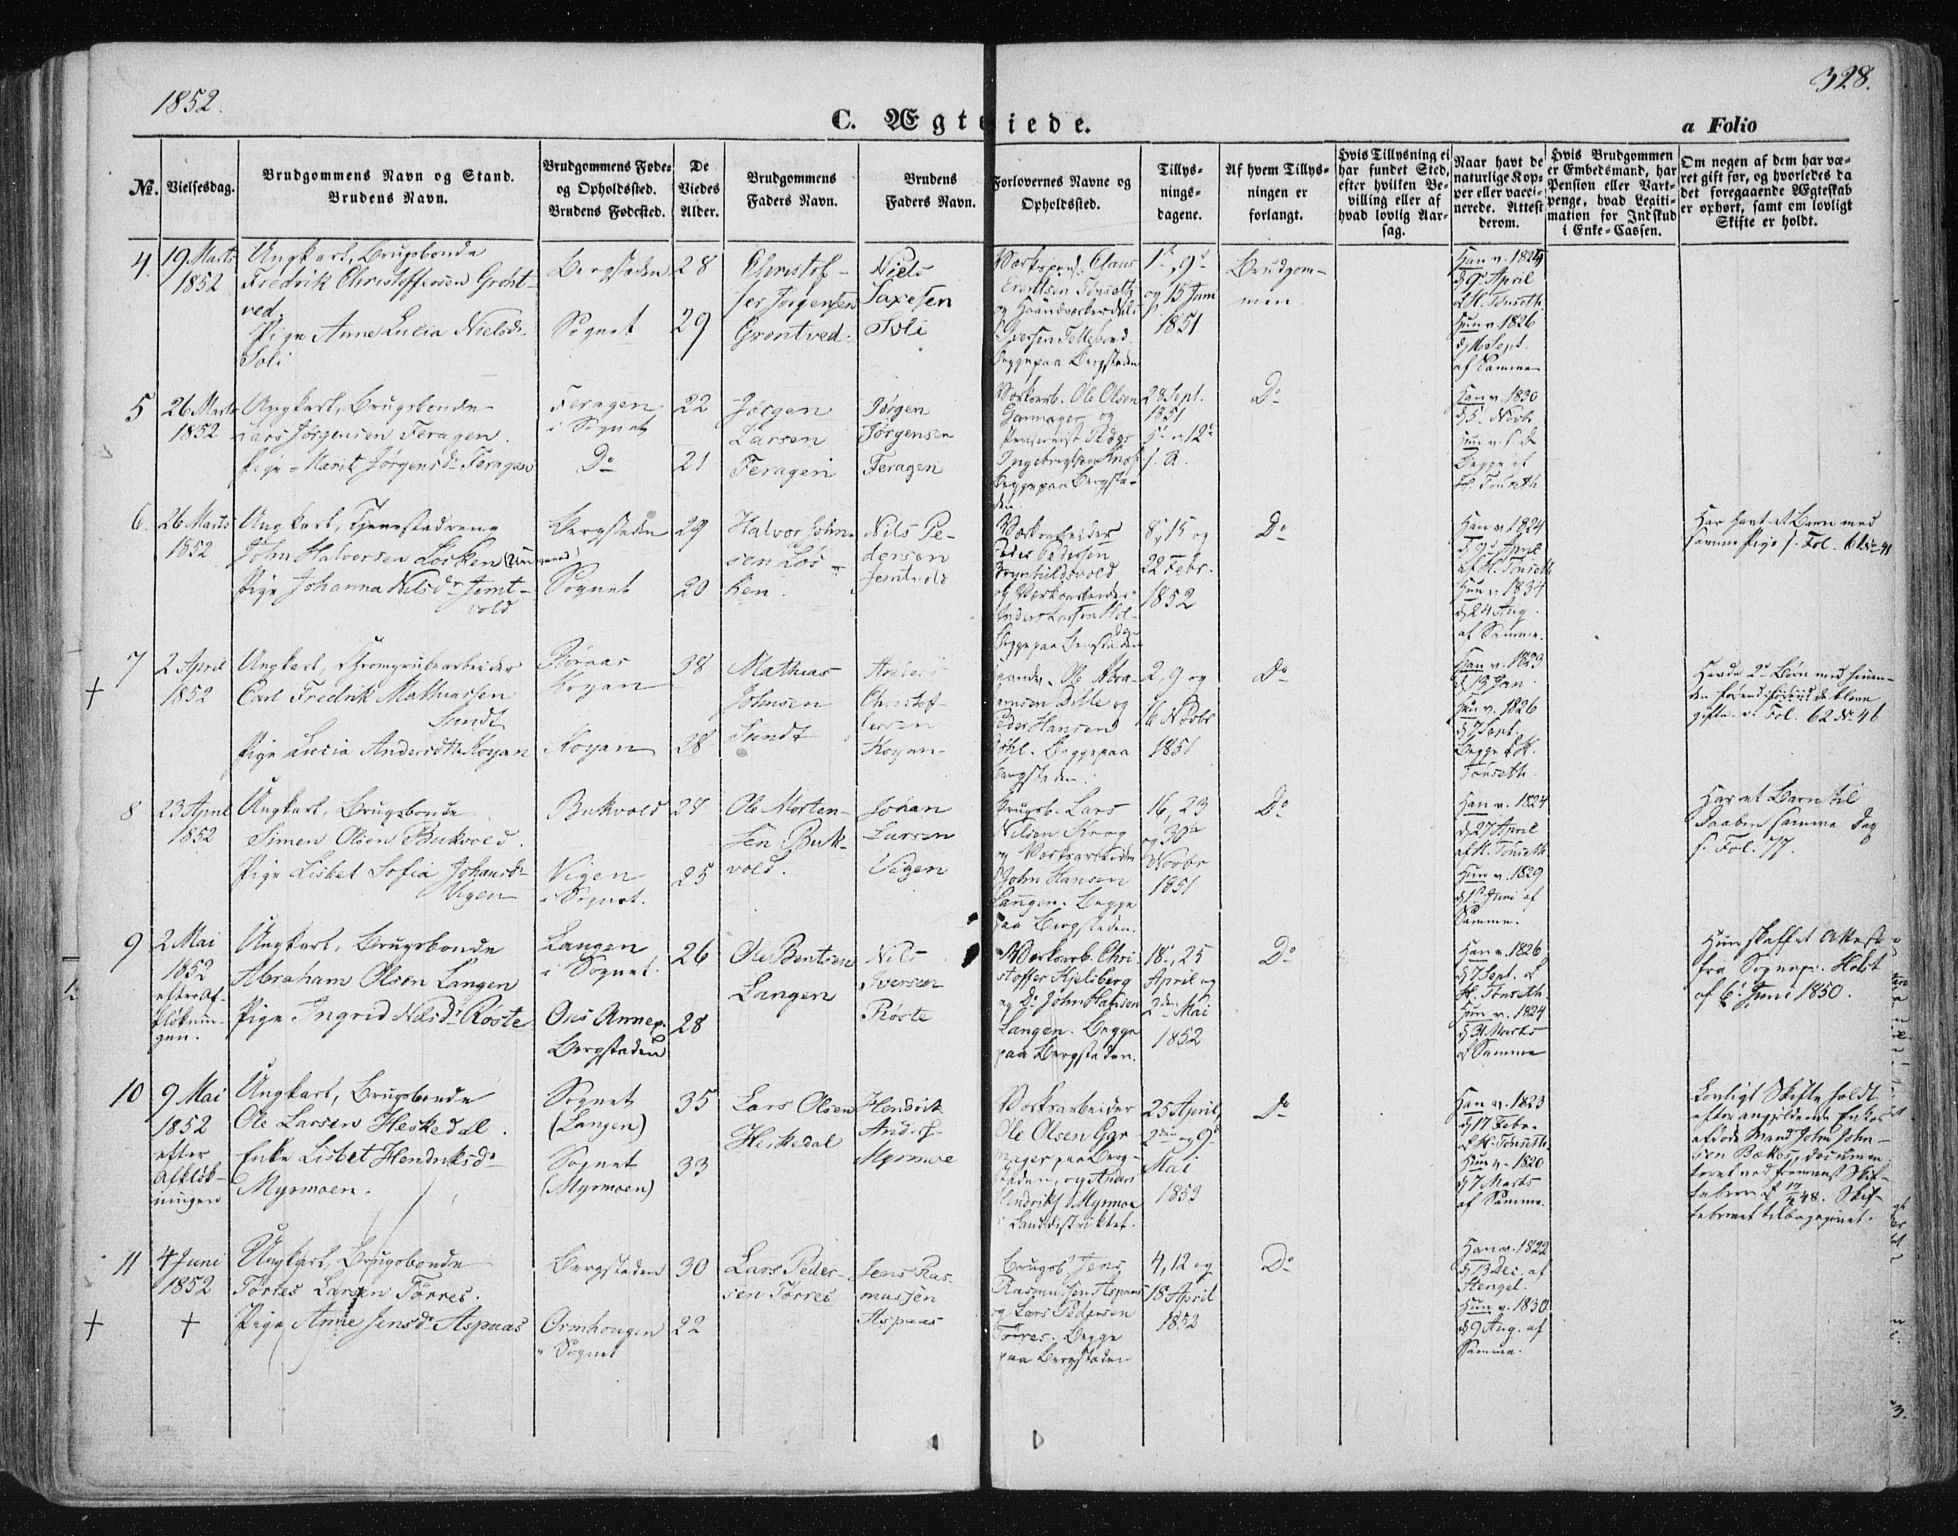 1852.
328.
C. Ægteviede.
a Folio
No.
Vielsesdag.
Brudgommens Navn og Stand.
Brudens Navn.
Brudgommens Føde-
og Opholdssted.
Brudens Fødested.
De
Viedes
Alder.
Brudgommens
Faders Navn.
Brudens
Faders Navn.
Forlovernes Navne og
Opholdssted.
Tillys-
nings-
dagene.
Af hvem Tillys-
ningen er
forlangt.
Hvis Tillysning ei
har fundet Sted,
efter hvilken Be-
villing eller af
hvad lovlig Aar-
sag.
Naar havt de
naturlige Kop-
per eller vacci-
nerede. Attest
derom.
Hvis Brudgommen
er Embedsmand, har
Pension eller Vart-
penge, hvad Legiti-
mation for Indskud
i Enke-Cassen.
Om nogen af dem har væ-
ret gift før, og hvorledes da
det foregaaende Ægteskab
er ophørt, samt om lovligt
Skifte er holdt.
4.
19 Marts
1852
Ungkarl, Brugsbonde
Fredrik Christoffersen Grønt-
ved.
Pige Anne Lucia Nielsd.
Soli
Bergstaden
Sognet
28
29
Christof-
fer Jørgensen
Grøntved.
Niels
Saxesen
Soli
Claus
Tønseth
Begge paa Bergstaden
1s., 9d.
og 15 Juni
1851
Brudgom-
men.
Han v. 1824
d. 9. April
af H. Tønseth.
Hun v. 1826
d. 16 Sept.
af Samme
5
26 Marts
1852
Ungkarl, Brugsbonde
Lars Jørgensen Feragen.
Pige Marit Jørgensd. Feragen
Feragen
i Sognet
Do
22
21
Jørgen
Larsen
Feragen
Jørgen
Jørgensen
Feragen
Verksarb. Ole Olsen
Garmager og
Peder
Begge paa Bergsta-
den.
28 Sept.
1851
5. 12.
Do
Han v. 1830
d. 5. Novbr
Begge af
H. Tønseth
6.
26 Marts
1852
Ungkarl, Tjenestedreng
John Halvorsen Løcken
Pige Johanna Nilsd. Jemt-
vold
Bergstaden
Sognet
29
20
Halvor John-
sen Lø-
ken.
Nils Pe-
dersen
Jemtvold
Verksarbeider
Peder Pedersen
og Verksarbeider
Begge paa Bergstaden
8, 15 og
22 Febr.
1852
Do
Han v. 1824
d. 9. April
af H. Tønseth
Hun v. 1834
d. 24 Aug.
af Samme.
Har havt et Barn med
samme Pige s. Fol. 62
7
2 April
1852
Ungkarl, Chromgrubearbeider
Carl Fredrik Mathiassen
Sundt
Pige Lucia Andersdtr. Kojan
Røraas
Kojan
Kojan
38
38
Mathias
Johnsen
Sundt
Anders
Christof-
fersen
Kojan
Ole Abra-
hamsen Dille og
Peder Hansen
Begge paa
Bergstaden.
2, 9 og
16 Novbr
1851
Do
Han v. 1823
d. 19 Jan.
Hun v. 1826
d. 7 Sept.
Begge af H.
Tønseth.
Havde 2de Børn med hinan-
den forend de bleve
gifte. Fol. 62 No. 46
8
23 April
1852
Ungkarl, Brugsbonde
Simen Olsen Bukvold.
Pige Lisbet Sofia Johansd.
Vigen
Bukvold
Vigen
i Sognet.
27
25
Ole Morten-
sen Buk-
vold.
Johan
Larsen
Vigen
Brugsb. Lars
Nilsen Krog
og Verksarbeider
John Hansen
Langen. Begge
paa Bergstaden.
16, 23
og 30te
Novbr
1851
Do
Han v. 1824
d. 27 April
af H. Tønseth.
Hun v. 1829
d. 1. Juni af
Samme.
Har et Barn til
Daaben samme Dag
s. Fol. 77.
9
2 Mai
1852
efter Af-
Ungkarl, Brugsbonde
Abraham Olsen Langen
Pige Ingrid Nilsd. Røste
Langen
i Sognet.
Os Annex.
Bergstaden
26
28
Ole Bentsen
Langen
Nils
Iversen
Røste
Verksarb. Chri-
stoffer Kjelsberg
og Do John Hansen
Langen. Begge
paa Bergstaden.
18., 25
April og
2den Mai
1852
Do
Han v. 1826
d. 7 Sept. af
H. Tønseth.
Hun v. 1824
d. 31 Marts
af Samme
Hun skaffet Attest
fra Sognepr. Holst
af 6. Juni 1850.
10
9 Mai
1852
efter
Ungkarl, Brugsbonde
Ole Larsen Heskedal.
Enke Lisbet Hendriksd.
Myrmoen.
Sognet
(Langen)
Sognet
(Myrmoen)
35
33
Lars Olsen
Heskedal
Hendrik
Anders.
Myrmoe
Verksarbeider
Ole Olsen Gar-
mager paa Berg-
staden, og Anders
Hendriks. Myrmoe
i Landdistriktet.
25 April,
2den og 9d.
Mai
1852
Do
Han v. 1823
d. 17 Febr.
af H. Tønseth.
Hun v. 1820
d. 7 Marts
af Samme.
Lovligt Skifte holdt
efter angjeldende Enkes
afdøde Mand John John-
sen Bækos, documen-
teret ved fremvist Skif-
tebrev af 17/4 48. Skif-
tebrevet tilbagegivet.
11
4 Juni
1852
Ungkarl, Brugsbonde
Tørres Larsen Tørres.
Pige Anne Jensd. Aspaas
Bergstaden
Ormhougen
i Sognet
30
22
Lars Peder-
sen Tørres
Jens Ras-
mussen
Aspaas
Brugsb. Jens
Rasmussen Aspaas
og Lars Pedersen
Tørres. Begge
paa Bergstaden
4, 12 og
18 April
1852
Do
Han v. 1822
d. 13 Dec. af
Stengel.
Hun v. 1830
d. 9 Aug. af
Samme.